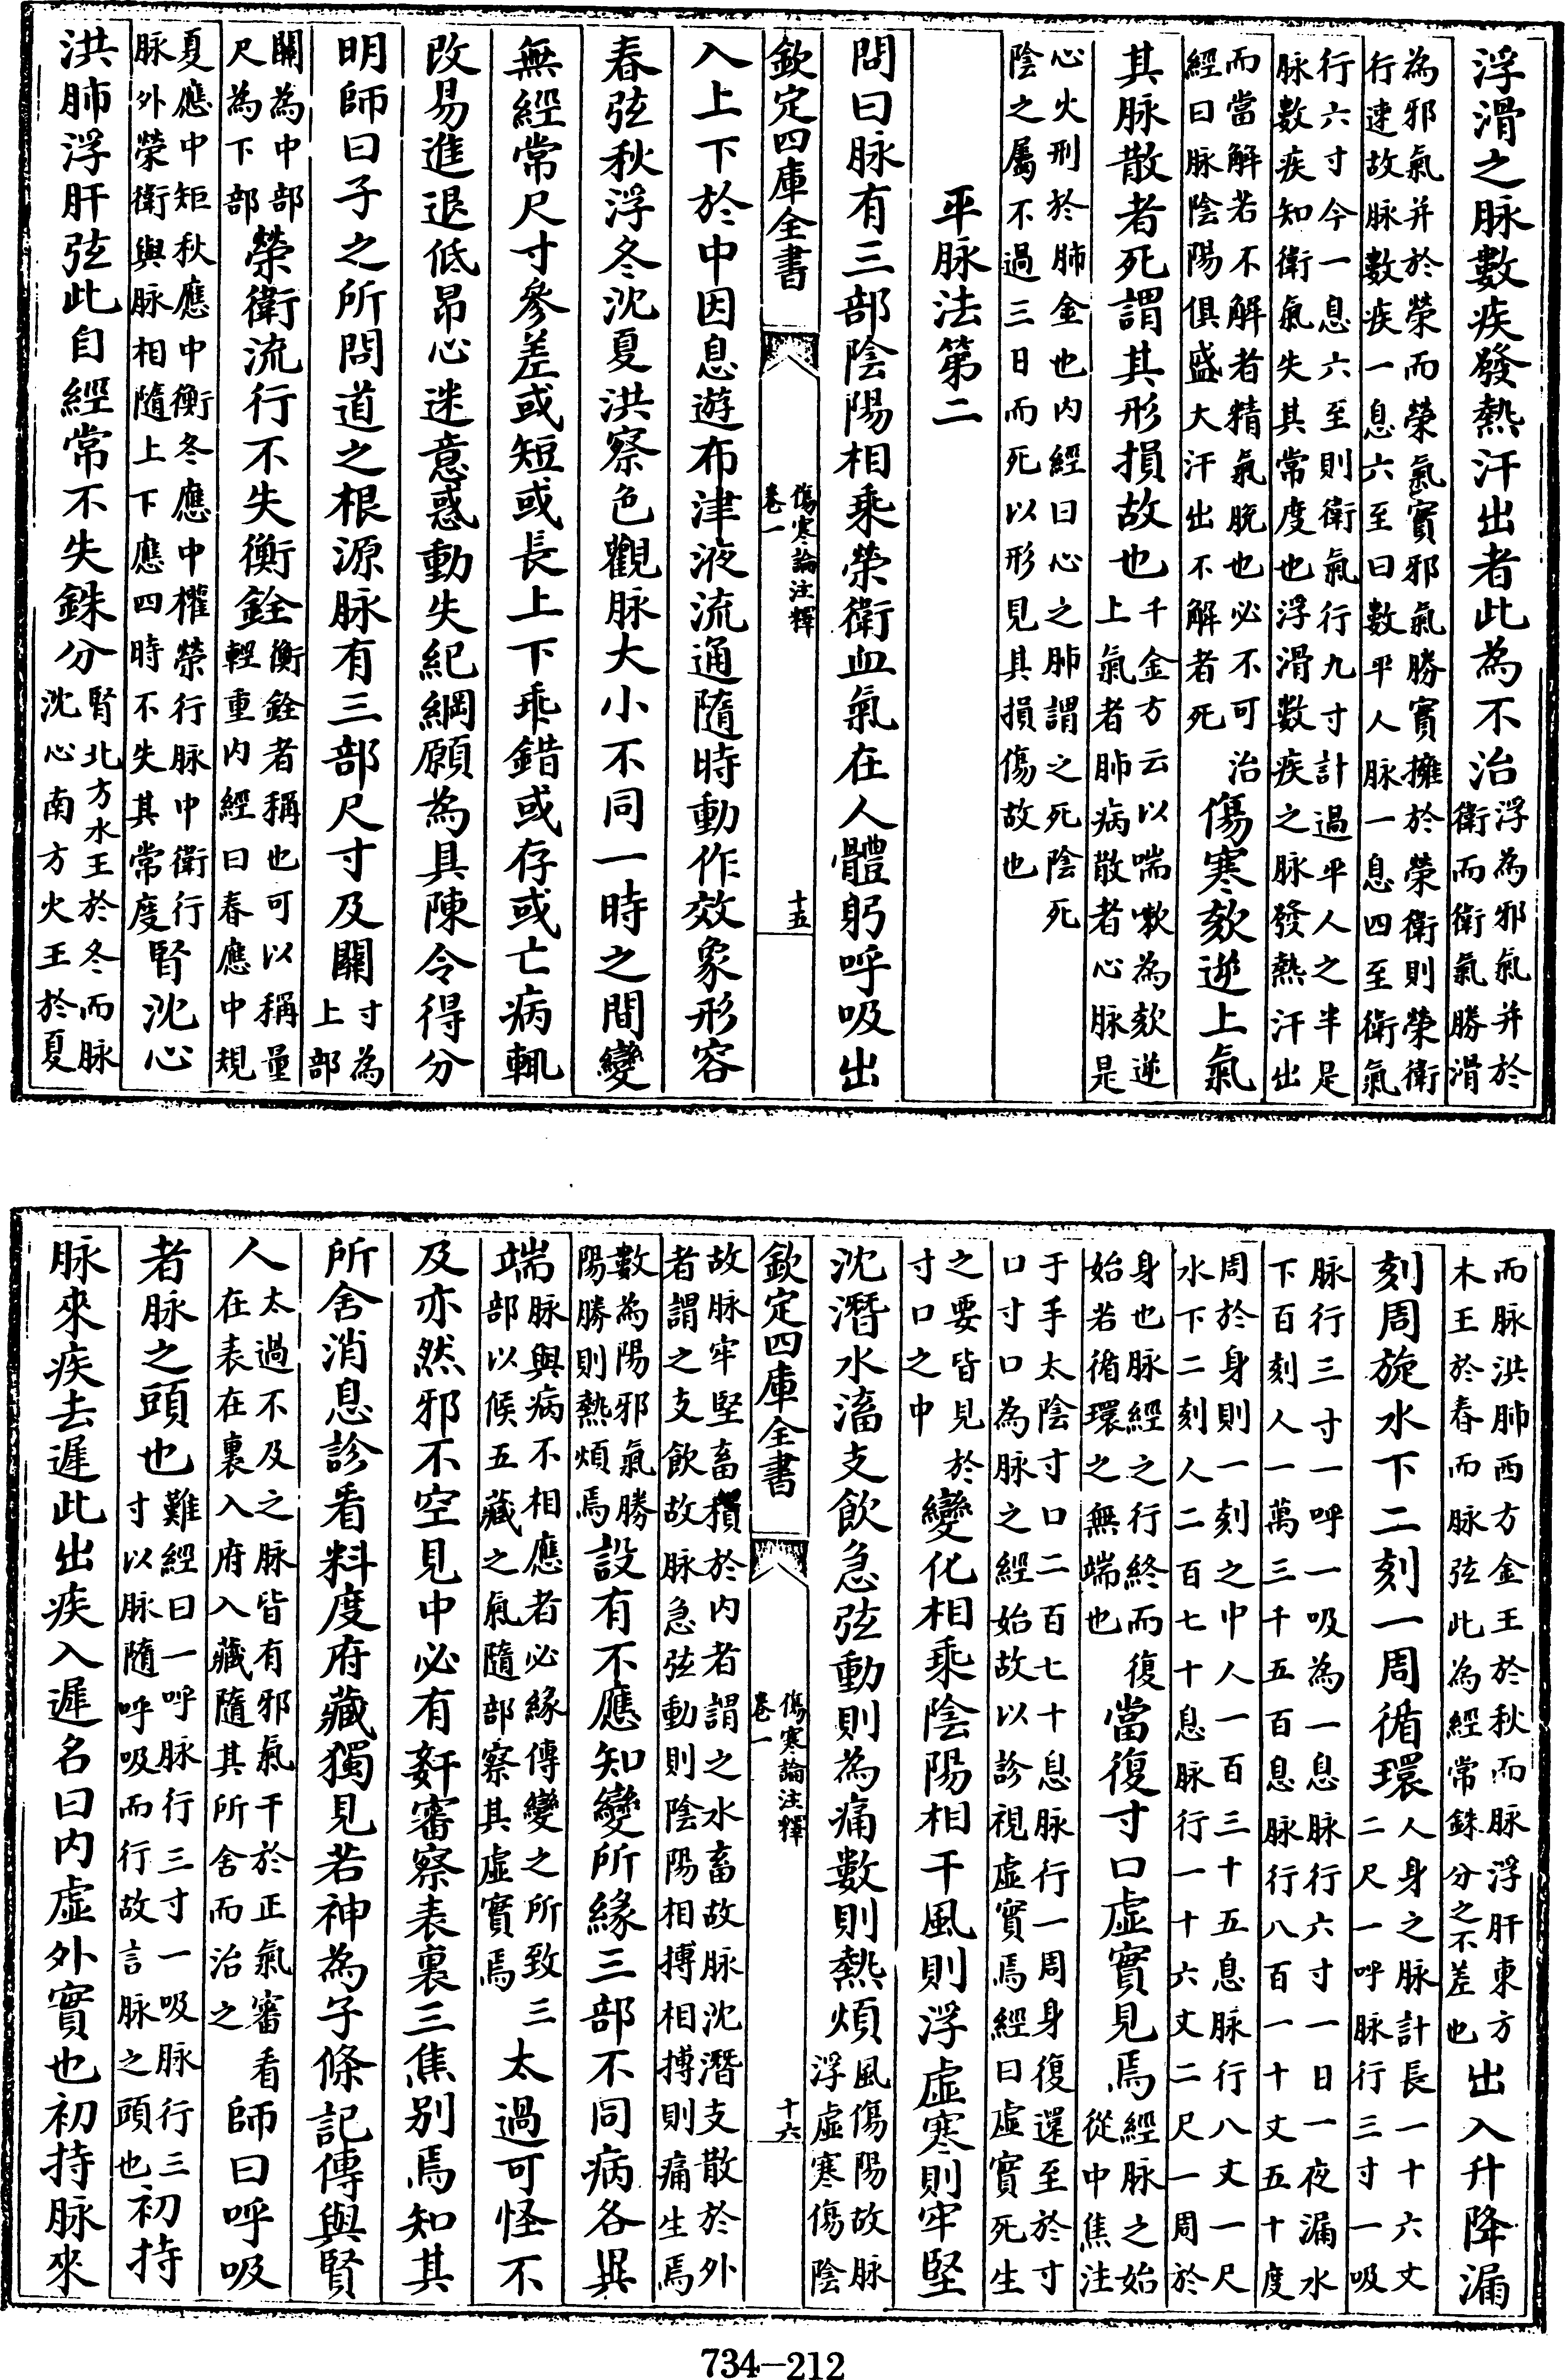 浮滑之脉數疾發熱汗出者此為不治浮為邪氣并於衛而衛氣勝滑
為邪氣并於榮而榮氣實邪氣勝實擁於榮衛則榮衛行速故脉數疾一息六至曰數平人脉一息四至衛氣
行六寸今一息六至則衛氣行九寸計過平人之半是脉數疾知衛氣失其常度也浮滑數疾之脉發熱汗出
而當解若不解者精氣脫也必不可治經曰脉陰陽俱盛大汗出不解者死傷寒欬逆上氣
其脉散者死謂其形損故也千金方云以喘嗽為欬逆上氣者肺病散者心脉是
心火刑於肺金也内經曰心之肺謂之死陰死陰之屬不過三日而死以形見其損傷故也
平脉法第二
問曰脉有三部陰陽相乘榮衛血氣在人體躬呼吸出
欽定四庫全書
傷寒論注釋
卷一
十五
入上下於中因息遊布津液流通隨時動作效象形容
春弦秋浮冬沈夏洪察色觀脉大小不同一時之間變
無經常尺寸參差或短或長上下乖錯或存或亡病輒
改易進退低昂心迷意惑動失紀綱願為具陳令得分
明師曰子之所問道之根源脉有三部尺寸及關寸為上部
關為中部尺為下部榮衛流行不失衡銓衡銓者稱也可以稱量輕重内經曰春應中規
夏應中矩秋應中衡冬應中權榮行脉中衛行脉外榮衛與脉相隨上下應四時不失其常度腎沈心
洪肺浮肝弦此自經常不失銖分腎北方水王於冬而脉沈心南方火王於夏
而脉洪肺西方金王於秋而脉浮肝東方木王於春而脉弦此為經常銖分之不差也出入升降漏
刻周旋水下二刻一周循環人身之脉計長一十六丈二尺一呼脉行三寸一吸
脉行三寸一呼一吸為一息脉行六寸一日一夜漏水下百刻人一萬三千五百息脉行八百一十丈五十度
周於身則一刻之中人一百三十五息脉行八丈一尺水下二刻人二百七十息脉行一十六丈二尺一周於
身也脉經之行終而復始若循環之無端也當復寸口虛實見焉經脉之始從中焦注
于手太陰寸口二百七十息脉行一周身復還至於寸口寸口為脉之經始故以診視虛實焉經曰虛實死生
之要皆見於寸口之中變化相乘陰陽相干風則浮虛寒則牢堅
沈潛水滀支飲急弦動則為痛數則熱煩風傷陽故脉浮虛寒傷陰
欽定四庫全書
傷寒論注釋
卷一
十六
故脉牢堅畜積於内者謂之水畜故脉沈潛支散於外者謂之支飲故脉急弦動則陰陽相搏相搏則痛生焉
數為陽邪氣勝陽勝則熱煩焉設有不應知變所緣三部不同病各異
端脉與病不相應者必緣傳變之所致三部以候五藏之氣隨部察其虛實焉太過可怪不
及亦然邪不空見中必有姦審察表裏三焦别焉知其
所舍消息診看料度府藏獨見若神為子條記傳與賢
人太過不及之脉皆有邪氣干於正氣審看在表在裏入府入藏隨其所舍而治之師曰呼吸
者脉之頭也難經曰一呼脉行三寸一吸脉行三寸以脉隨呼吸而行故言脉之頭也初持
脉來疾去遲此出疾入遲名曰内虛外實也初持脉來
734-212